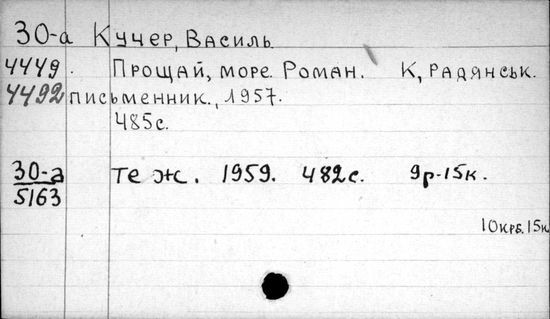 30-а Кучер, Василь
4449. Прощай, море. Роман. К, радянськ.
4492 письменник., 1957.
485с.
30-а Те ж. 1959. 482с. 9р.-15к.
5163
10крб.15к